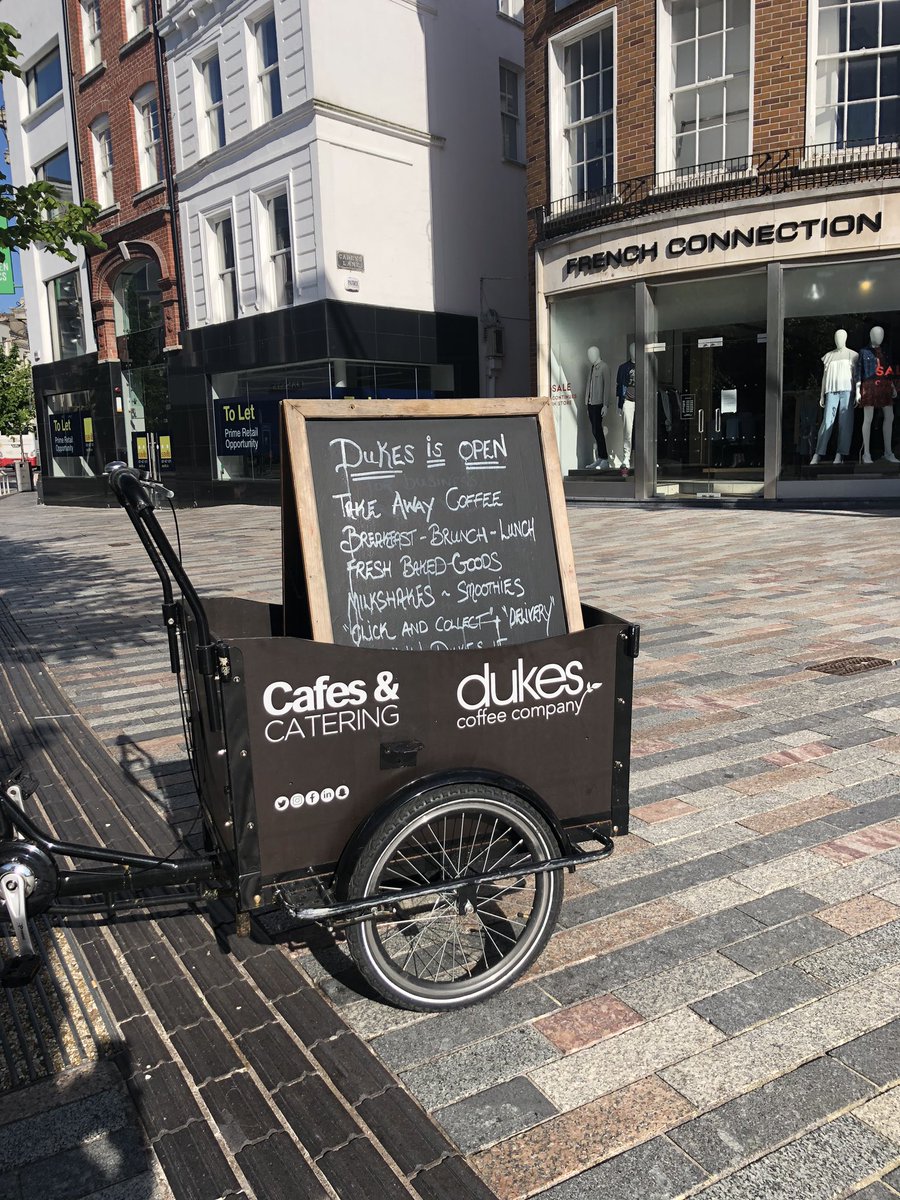 FRENCH CONNECTION
CAREYS
LANE
SALE
SALE
To Let
Prime Retail
Opportunity
To Let
Prime Retail
Opportunity
DUKES IS OPEN
TAKE AWAY COFFEE
BREAKFAST - BRUNCH - LUNCH
FRESH BAKED-GOODS
MILKSHAKES ~ SMOOTHIES
"CLICK AND COLLECT" + "DELIVERY"
DUKES.IE
Cafes &
CATERING
dukes
coffee company